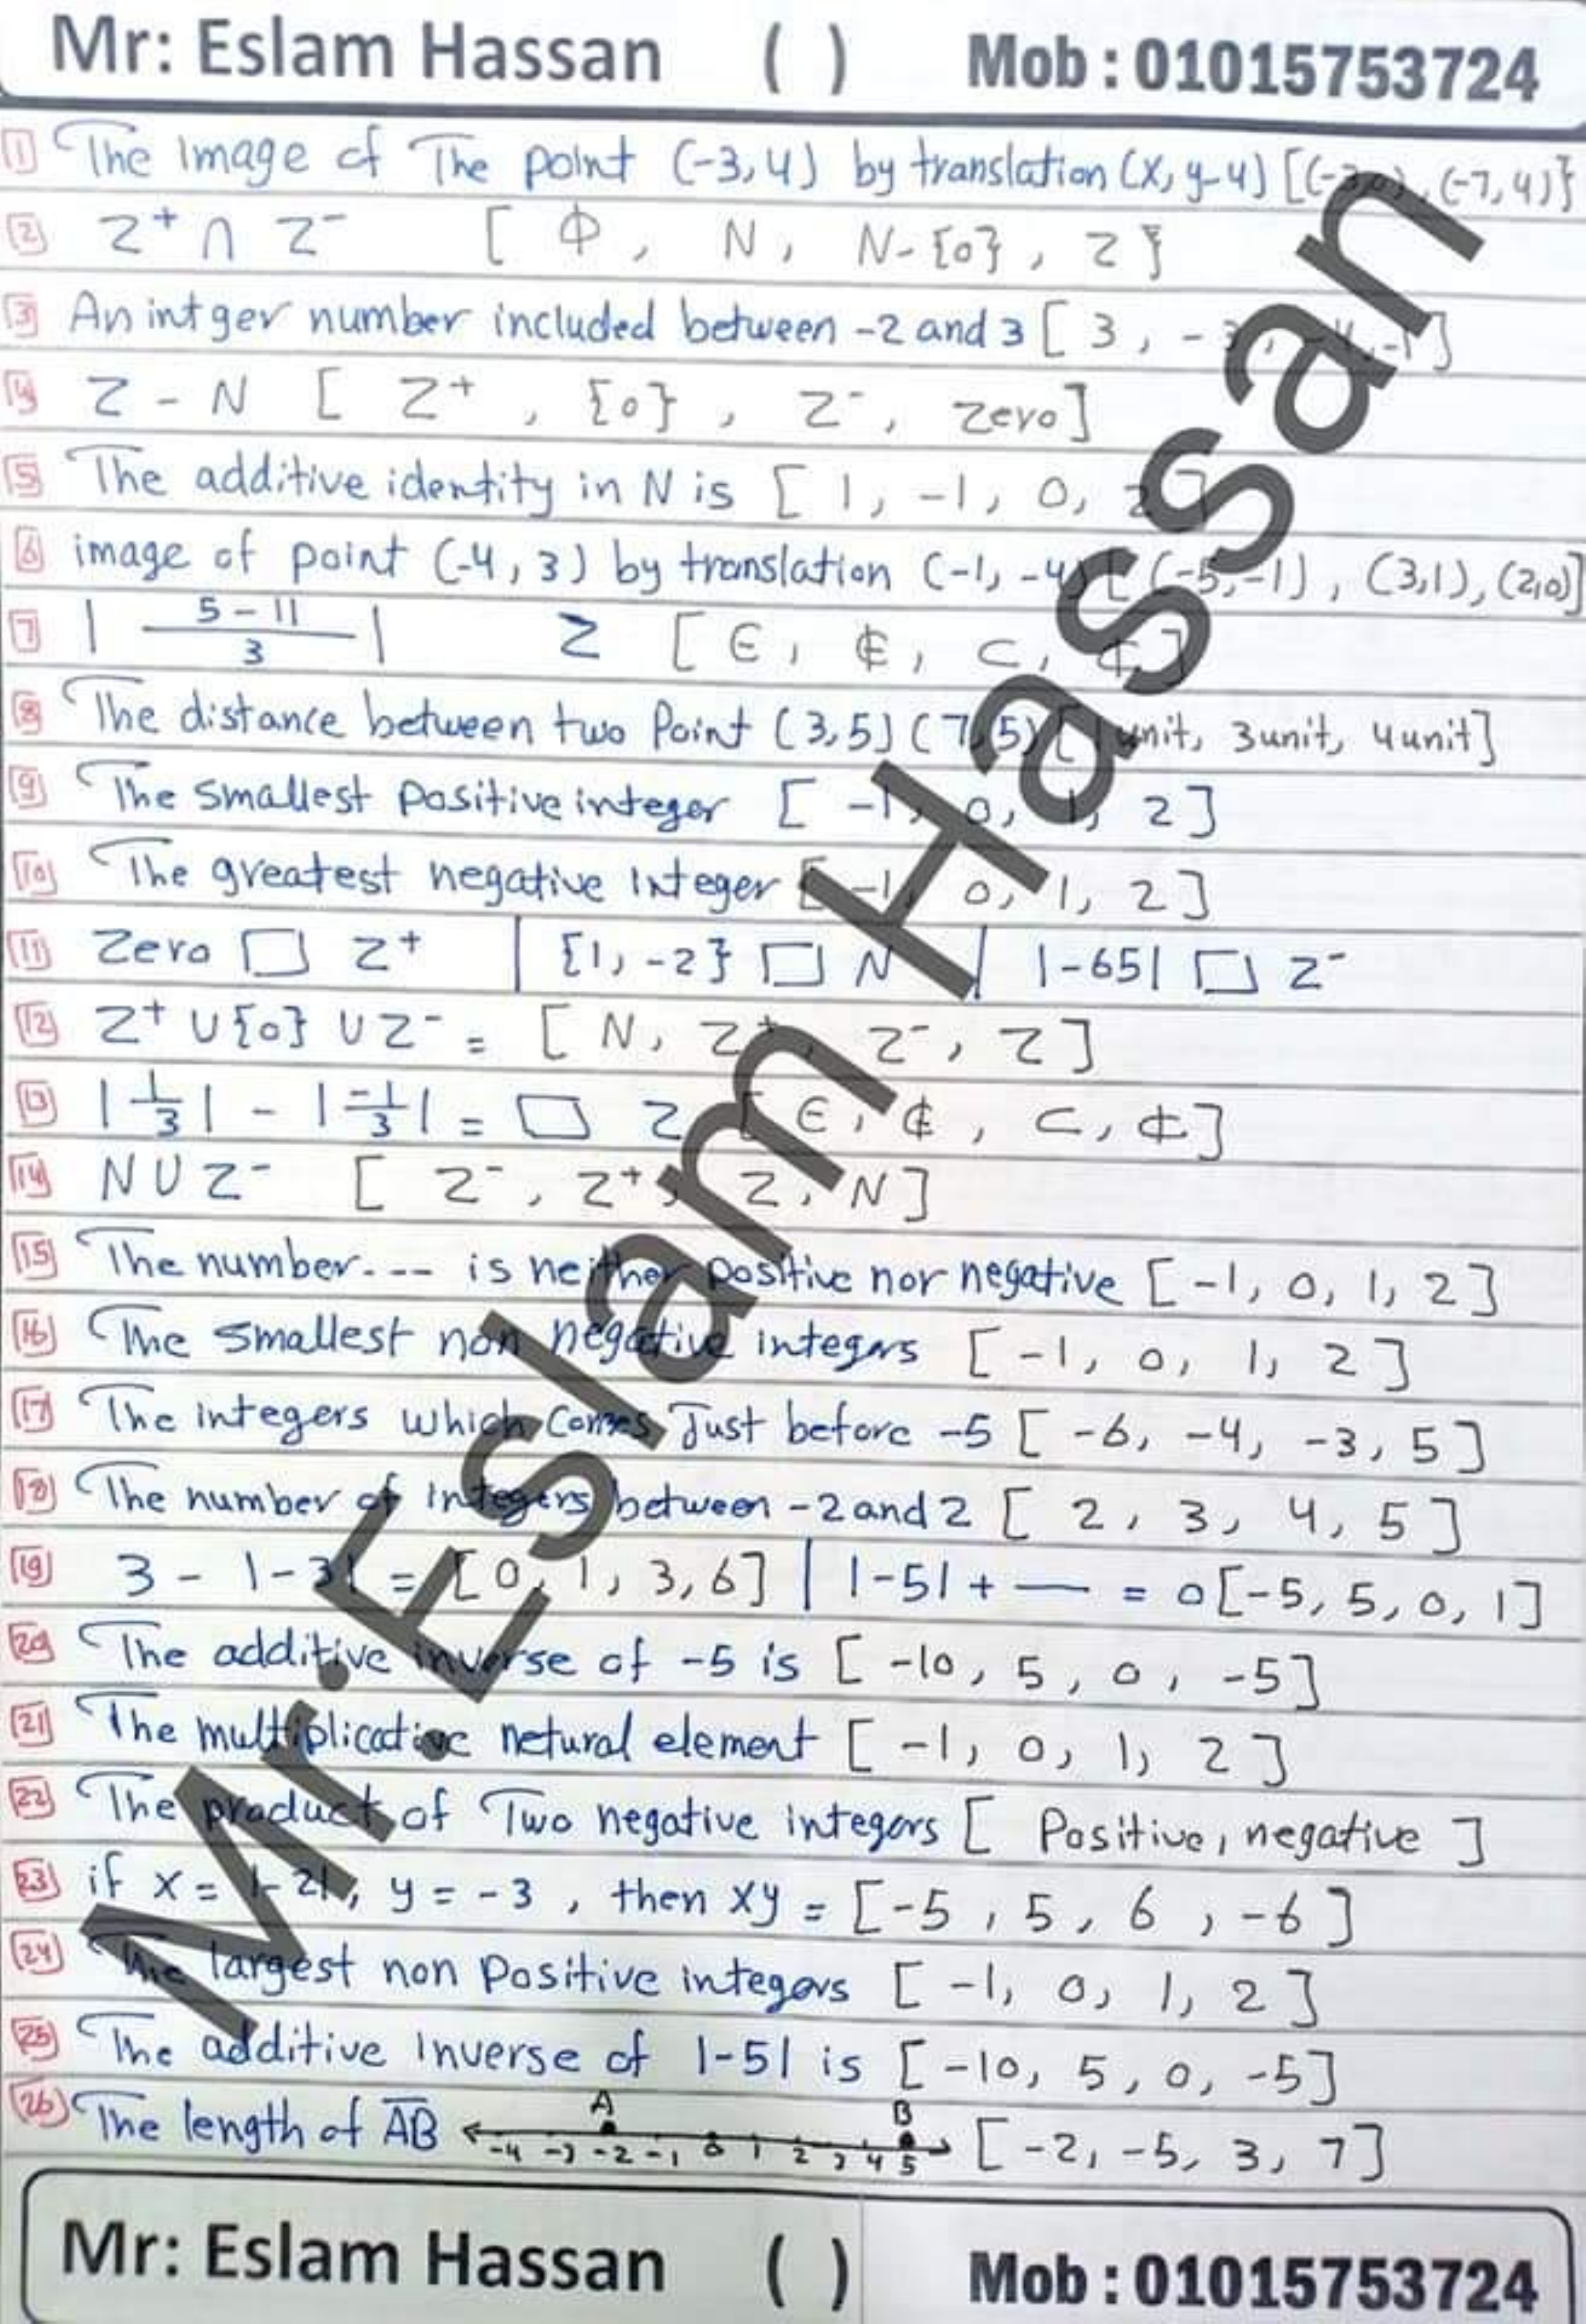 Mr: Eslam Hassan ( ) Mob : 01015753724
1 The Image of The point (-3,4) by translation (x, y-4) [(-3,0), (-7,4)}
2 Z⁺ ∩ Z⁻ [ Φ, N, N-{0}, Z }
3 An intger number included between -2 and 3 [ 3, -3, -4, -1 ]
4 Z - N [ Z⁺, {0}, Z⁻, Zero ]
5 The additive identity in N is [ 1, -1, 0, 2 ]
6 image of point (-4, 3) by translation (-1, -4) [ (-5, -1), (3,1), (2,0)]
7 | (5-11)/3 | Z [ ∈, ∉, ⊂, ⊄ ]
8 The distance between two Point (3,5) (7,5) [ 1unit, 3unit, 4unit]
9 The smallest positive integer [ -1, 0, 1, 2 ]
10 The greatest negative Integer [ -1, 0, 1, 2 ]
11 Zero □ Z⁺ | {1, -2} □ N | |-65| □ Z⁻
12 Z⁺ ∪ {0} ∪ Z⁻ = [ N, Z⁺, Z⁻, Z ]
13 |1/3| - |-1/3| = □ Z [ ∈, ∉, ⊂, ⊄ ]
14 N ∪ Z⁻ [ Z⁻, Z⁺, Z, N ]
15 The number.--- is neither positive nor negative [ -1, 0, 1, 2 ]
16 The smallest non negative integers [ -1, 0, 1, 2 ]
17 The integers which comes Just before -5 [ -6, -4, -3, 5 ]
18 The number of Integers between -2 and 2 [ 2, 3, 4, 5 ]
19 3 - |-3| = [0, 1, 3, 6] | |-5| + — = 0 [-5, 5, 0, 1]
20 The additive inverse of -5 is [ -10, 5, 0, -5]
21 The multiplicative netural element [ -1, 0, 1, 2 ]
22 The product of Two negative integers [ Positive, negative ]
23 if x = |-2|, y = -3, then xy = [-5, 5, 6, -6 ]
24 The largest non Positive integers [ -1, 0, 1, 2 ]
25 The additive Inverse of |-5| is [ -10, 5, 0, -5]
26 The length of AB A B -4 -3 -2 -1 0 1 2 3 4 5 [ -2, -5, 3, 7]
Mr: Eslam Hassan ( ) Mob : 01015753724
Mr. Eslam Hassan